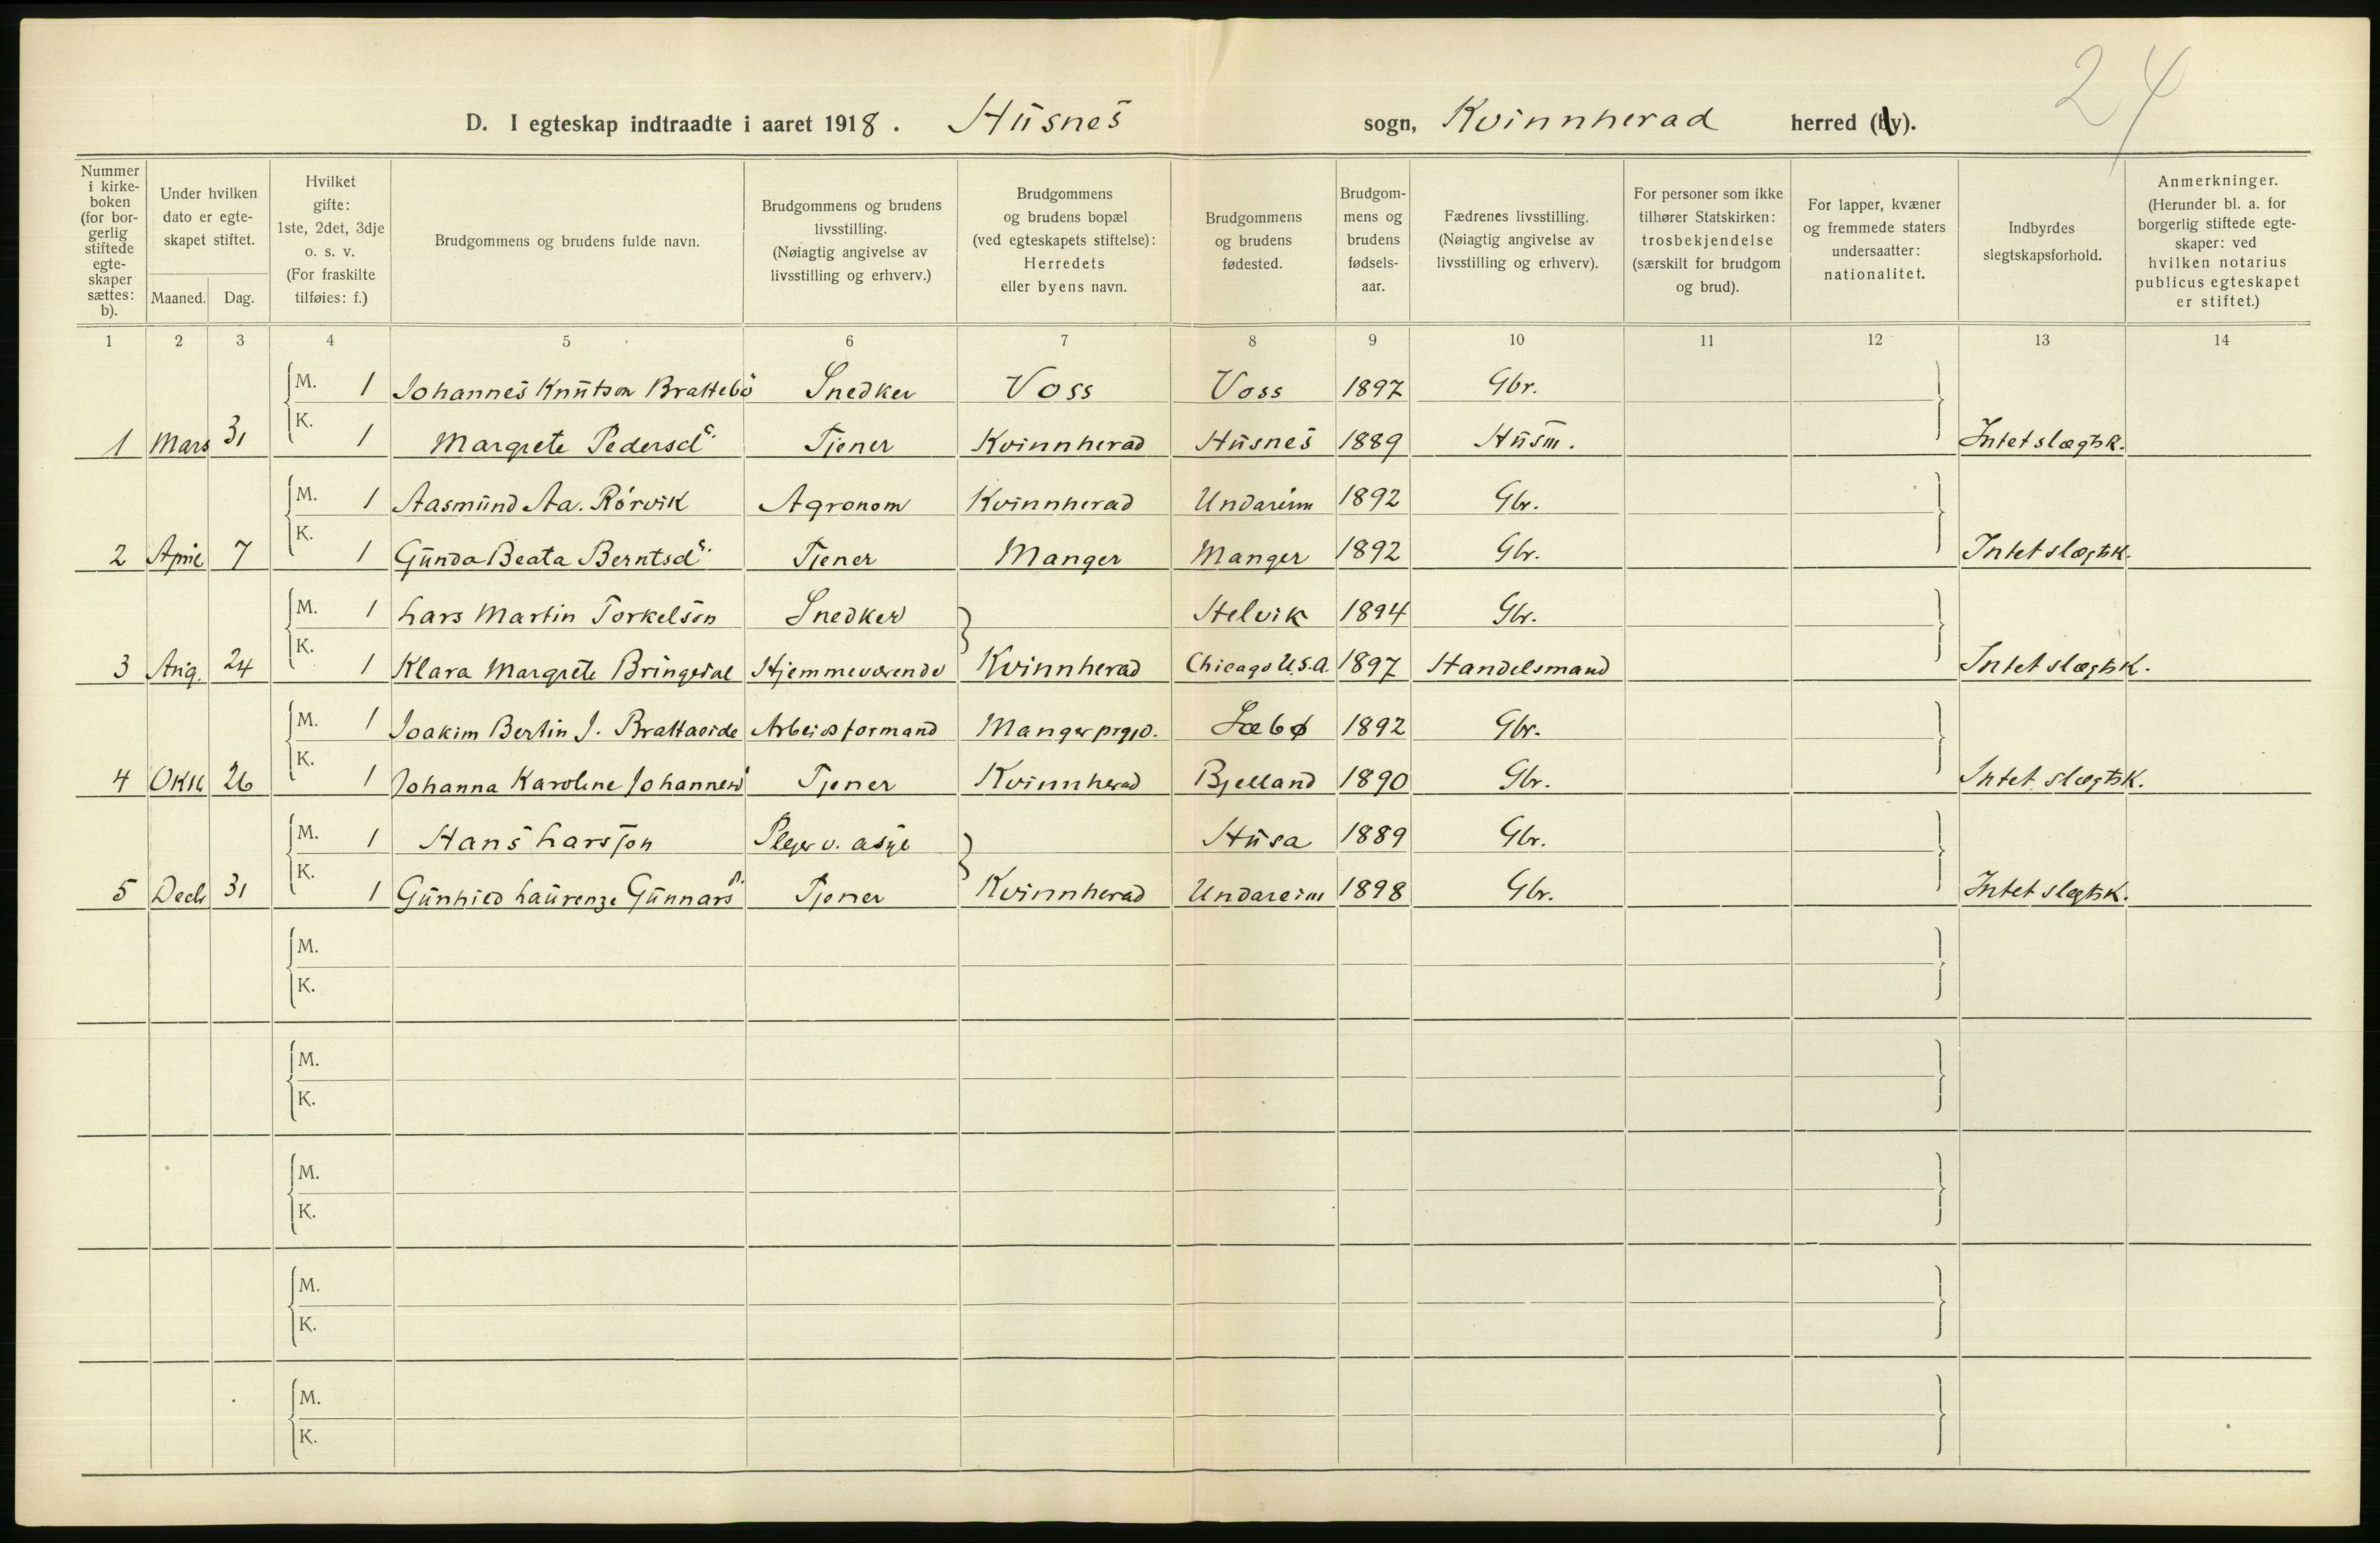 24
D. I egteskap indtraadte i aaret 1918. Husnes sogn, Kvinnherad herred (by).
Nummer i kirkeboken (for borgerlig stiftede egteskaper sættes: b).
Under hvilken dato er egteskapet stiftet.
Maaned. Dag.
Hvilket gifte: 1ste, 2det, 3dje o. s. v. (For fraskilte tilføies: f.)
Brudgommens og brudens fulde navn.
Brudgommens og brudens livsstilling. (Nøiagtig angivelse av livsstilling og erhverv.)
Brudgommens og brudens bopæl (ved egteskapets stiftelse): Herredets eller byens navn.
Brudgommens og brudens fødested.
Brudgommens og brudens fødselsaar.
Fædrenes livsstilling. (Nøiagtig angivelse av livsstilling og erhverv).
For personer som ikke tilhører Statskirken: trosbekjendelse (særskilt for brudgom og brud).
For lapper, kvæner og fremmede staters undersaatter: nationalitet.
Indbyrdes slegtskapsforhold.
Anmerkninger. (Herunder bl. a. for borgerlig stiftede egteskaper: ved hvilken notarius publicus egteskapet er stiftet.)
1 2 3 4 5 6 7 8 9 10 11 12 13 14
M. 1 Johannes Knutson Brattebö Snedker Voss Voss 1897 Gbr.
1 Mars 31 K. 1 Margrete Pedersdr. Tjener Kvinnherad Husnes 1889 Husm. Intet slægtsk.
M. 1 Aasmund Aa. Rörvik Agronom Kvinnherad Undareim 1892 Gbr.
2 April 7 K. 1 Gunda Beata Berntsdr. Tjener Manger Manger 1892 Gbr. Intet slægtsk.
M. 1 Lars Martin Torkelson Snedker Helvik 1894 Gbr.
3 Aug. 24 K. 1 Klara Margrete Bringedal Hjemmeværende Kvinnherad Chicago U.S.A. 1897 Handelsmand Intet slægtsk.
M. 1 Joakim Bertin J. Brattaeide Arbeidsformand Manger prgjd. Sæbø 1892 Gbr.
4 Oktr 26 K. 1 Johanna Karoline Johannesd Tjener Kvinnherad Bjelland 1890 Gbr. Intet slægtsk.
M. 1 Hans Larsson Pleyer v. asyl Husa 1889 Gbr.
5 Decb 31 K. 1 Gunhild Laurenze Gunnarsd. Tjener Kvinnherad Undareim 1898 Gbr. Intet slegtsk.
M.
K.
M.
K.
M.
K.
M.
K.
M.
K.